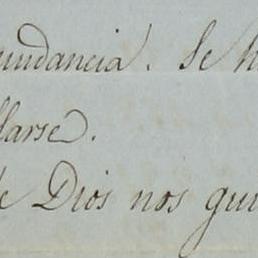 undancia. Se h
llarse.
e Dios nos gui